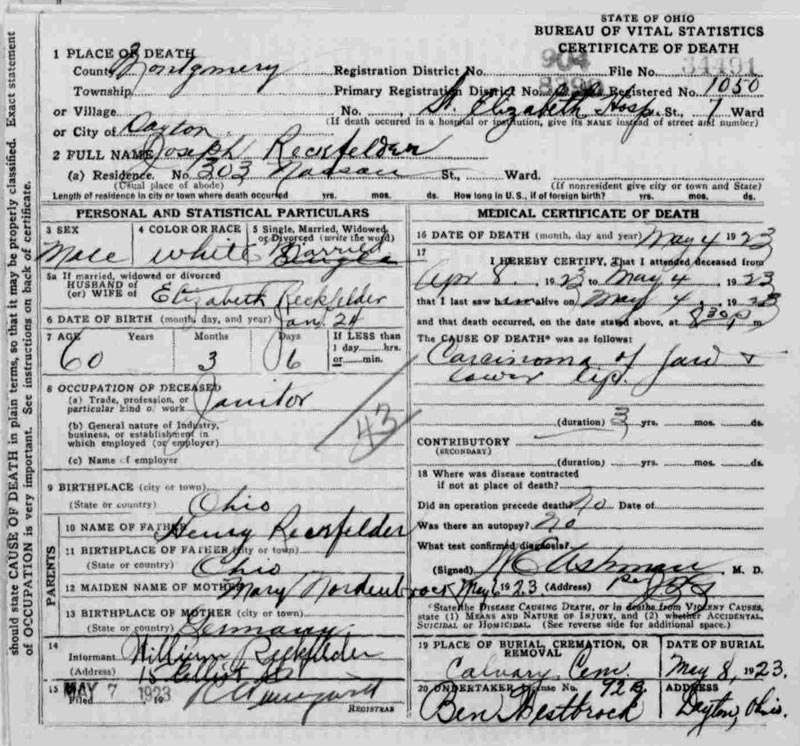 STATE OF OHIO
BUREAU OF VITAL STATISTICS
CERTIFICATE OF DEATH
1 PLACE OF DEATH
County Montgomery Registration District No. 904 File No. 34491
Township Primary Registration District No. Registered No. 1050
or Village No. St. Elizabeth Hosp. St., 7 Ward
(If death occured in a hospital or institution, give its NAME instead of street and number)
or City of Dayton
2 FULL NAME Joseph Reckfelder
(a) Residence. No. 303 Nassau St., Ward.
(Usual place of abode) (If nonresident give city or town and State)
Length of residence in city or town where death occurred yrs. mos. ds. How long in U.S., if of foreign birth? yrs. mos. ds.
PERSONAL AND STATISTICAL PARTICULARS
3 SEX 4 COLOR OR RACE 5 Single, Married, Widowed, or Divorced (write the word)
Male White Married
5a If married, widowed or divorced
HUSBAND of
(or) WIFE of Elizabeth Reckfelder
6 DATE OF BIRTH (month, day, and year) Jan. 24
7 AGE Years Months Days If LESS than
1 day hrs.
or min.
60 3 6
8 OCCUPATION OF DECEASED
(a) Trade, profession, or
particular kind of work Janitor
(b) General nature of Industry,
business, or establishment in
which employed (or employer)
(c) Name of employer
43
9 BIRTHPLACE (city or town)
(State or country) Ohio
PARENTS
10 NAME OF FATHER Henry Reckfelder
11 BIRTHPLACE OF FATHER (city or town)
(State or country) Ohio
12 MAIDEN NAME OF MOTHER Mary Nordenbrock
13 BIRTHPLACE OF MOTHER (city or town)
(State or country) Germany
14
Informant William Reckfelder
(Address)
15 Filed MAY 7 1923
REGISTRAR
MEDICAL CERTIFICATE OF DEATH
16 DATE OF DEATH (month, day and year) May 4 1923
17 I HEREBY CERTIFY, That I attended deceased from
Apr 8, 1923 to May 4, 1923
that I last saw him alive on May 4, 1923
and that death occurred, on the date stated above, at 830 P m
The CAUSE OF DEATH* was as follows:
Carcinoma of Jaw +
lower lip.
(duration) yrs. mos. ds.
CONTRIBUTORY
(SECONDARY)
(duration) yrs. mos. ds.
18 Where was disease contracted
if not at place of death?
Did an operation precede death? No Date of
Was there an autopsy? No
What test confirmed diagnosis?
(Signed) M. D.
May 6 1923 (Address)
*State the DISEASE CAUSING DEATH, or in deaths from VIOLENT CAUSES,
state (1) MEANS AND NATURE OF INJURY, and (2) whether ACCIDENTAL,
SUICIDAL or HOMICIDAL. (See reverse side for additional space.)
19 PLACE OF BURIAL, CREMATION, OR REMOVAL DATE OF BURIAL
Calvary Cem. May 8, 1923.
20 UNDERTAKER, License No. 92B ADDRESS
Ben Westbrock Dayton, Ohio.
should state CAUSE OF DEATH in plain terms, so that it may be properly classified. Exact statement
of OCCUPATION is very important. See instructions on back of certificate.